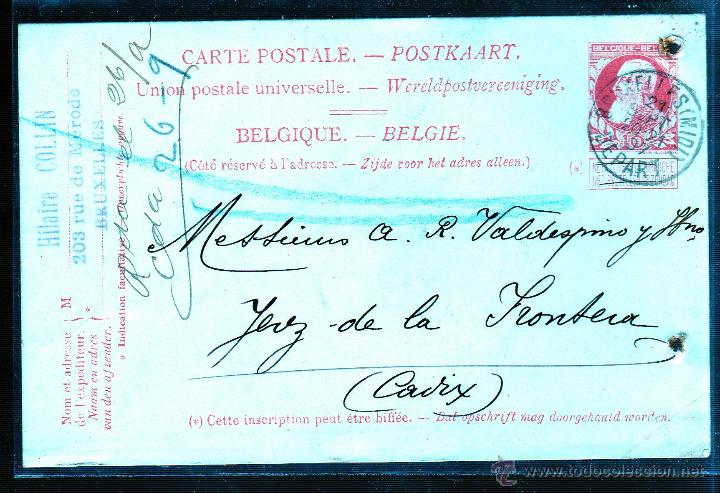 CARTE POSTALE. — POSTKAART.
Union postale universelle. — Wereldpostvereeniging.
BELGIQUE. — BELGIE.
(Côté réservé à l'adresse. — Zijde voor het adres alleen.)
(*)
BELGIQUE-BEL
10
DEPART
Messieurs A. R. Valdespino y Hno
Jerez de la Frontera
(Cadix)
(*) Cette inscription peut être biffée. — Dat opschrift mag doorgehaald worden.
Hilaire COLLIN
203 rue de Mérode
BRUXELLES
26/9
Cda 26-9
* Indication facultative
M
Nom et adresse
de l'expéditeur
Naam en adres
van den afzender.
© www.todocoleccion.net